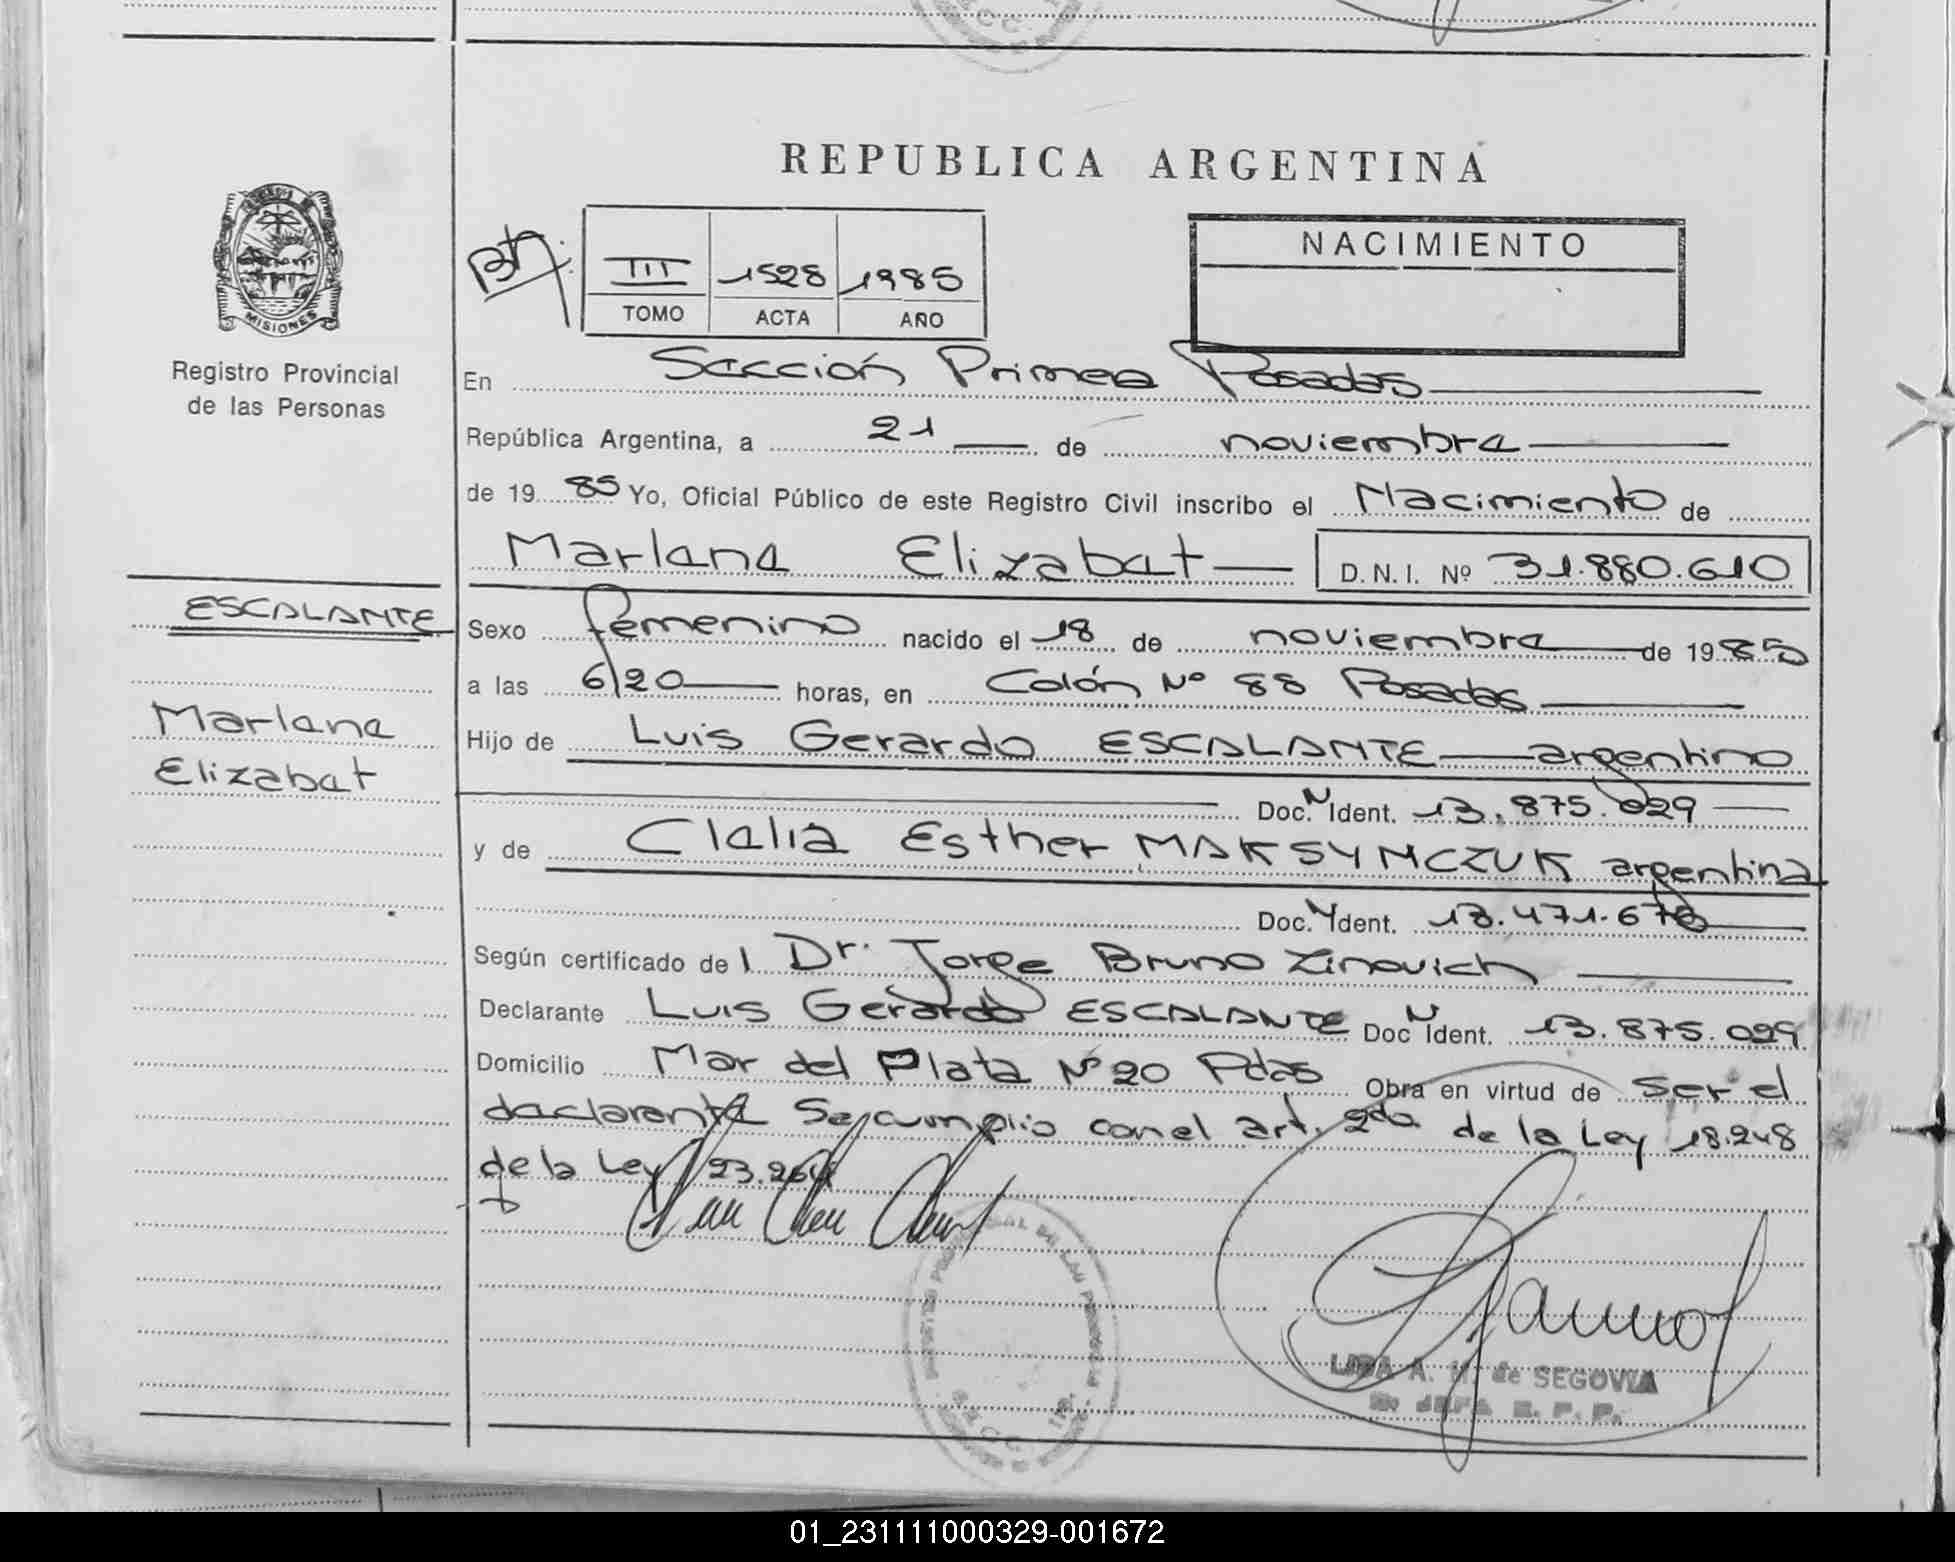 REPUBLICA ARGENTINA
III 1528 1985
TOMO ACTA AÑO
NACIMIENTO
MISIONES
Registro Provincial
de las Personas
En Sección Primera Posadas
República Argentina, a 21 de noviembre
de 19 85 Yo, Oficial Público de este Registro Civil inscribo el Nacimiento de
Marlene Elizabet D.N.I. Nº 31.880.610
ESCALANTE
Marlene
Elizabet
Sexo femenino nacido el 18 de noviembre de 19 85
a las 6/20 horas, en Colón Nº 88 Posadas
Hijo de Luis Gerardo ESCALANTE argentino
Doc. N Ident. 13.875.029
y de Clelia Esther MAKSYMCZUK argentina
Doc. Ident. 13.471.678
Según certificado de l Dr. Jorge Bruno Zinovich
Declarante Luis Gerardo ESCALANTE Doc N Ident. 13.875.029
Domicilio Mar del Plata Nº 20 Pdas Obra en virtud de ser el
declarante Se cumplio con el art. 2do. de la Ley 18.248
de la Ley 23.264
A. M. de SEGOVIA
JEFA R. P. P.
01_231111000329-001672